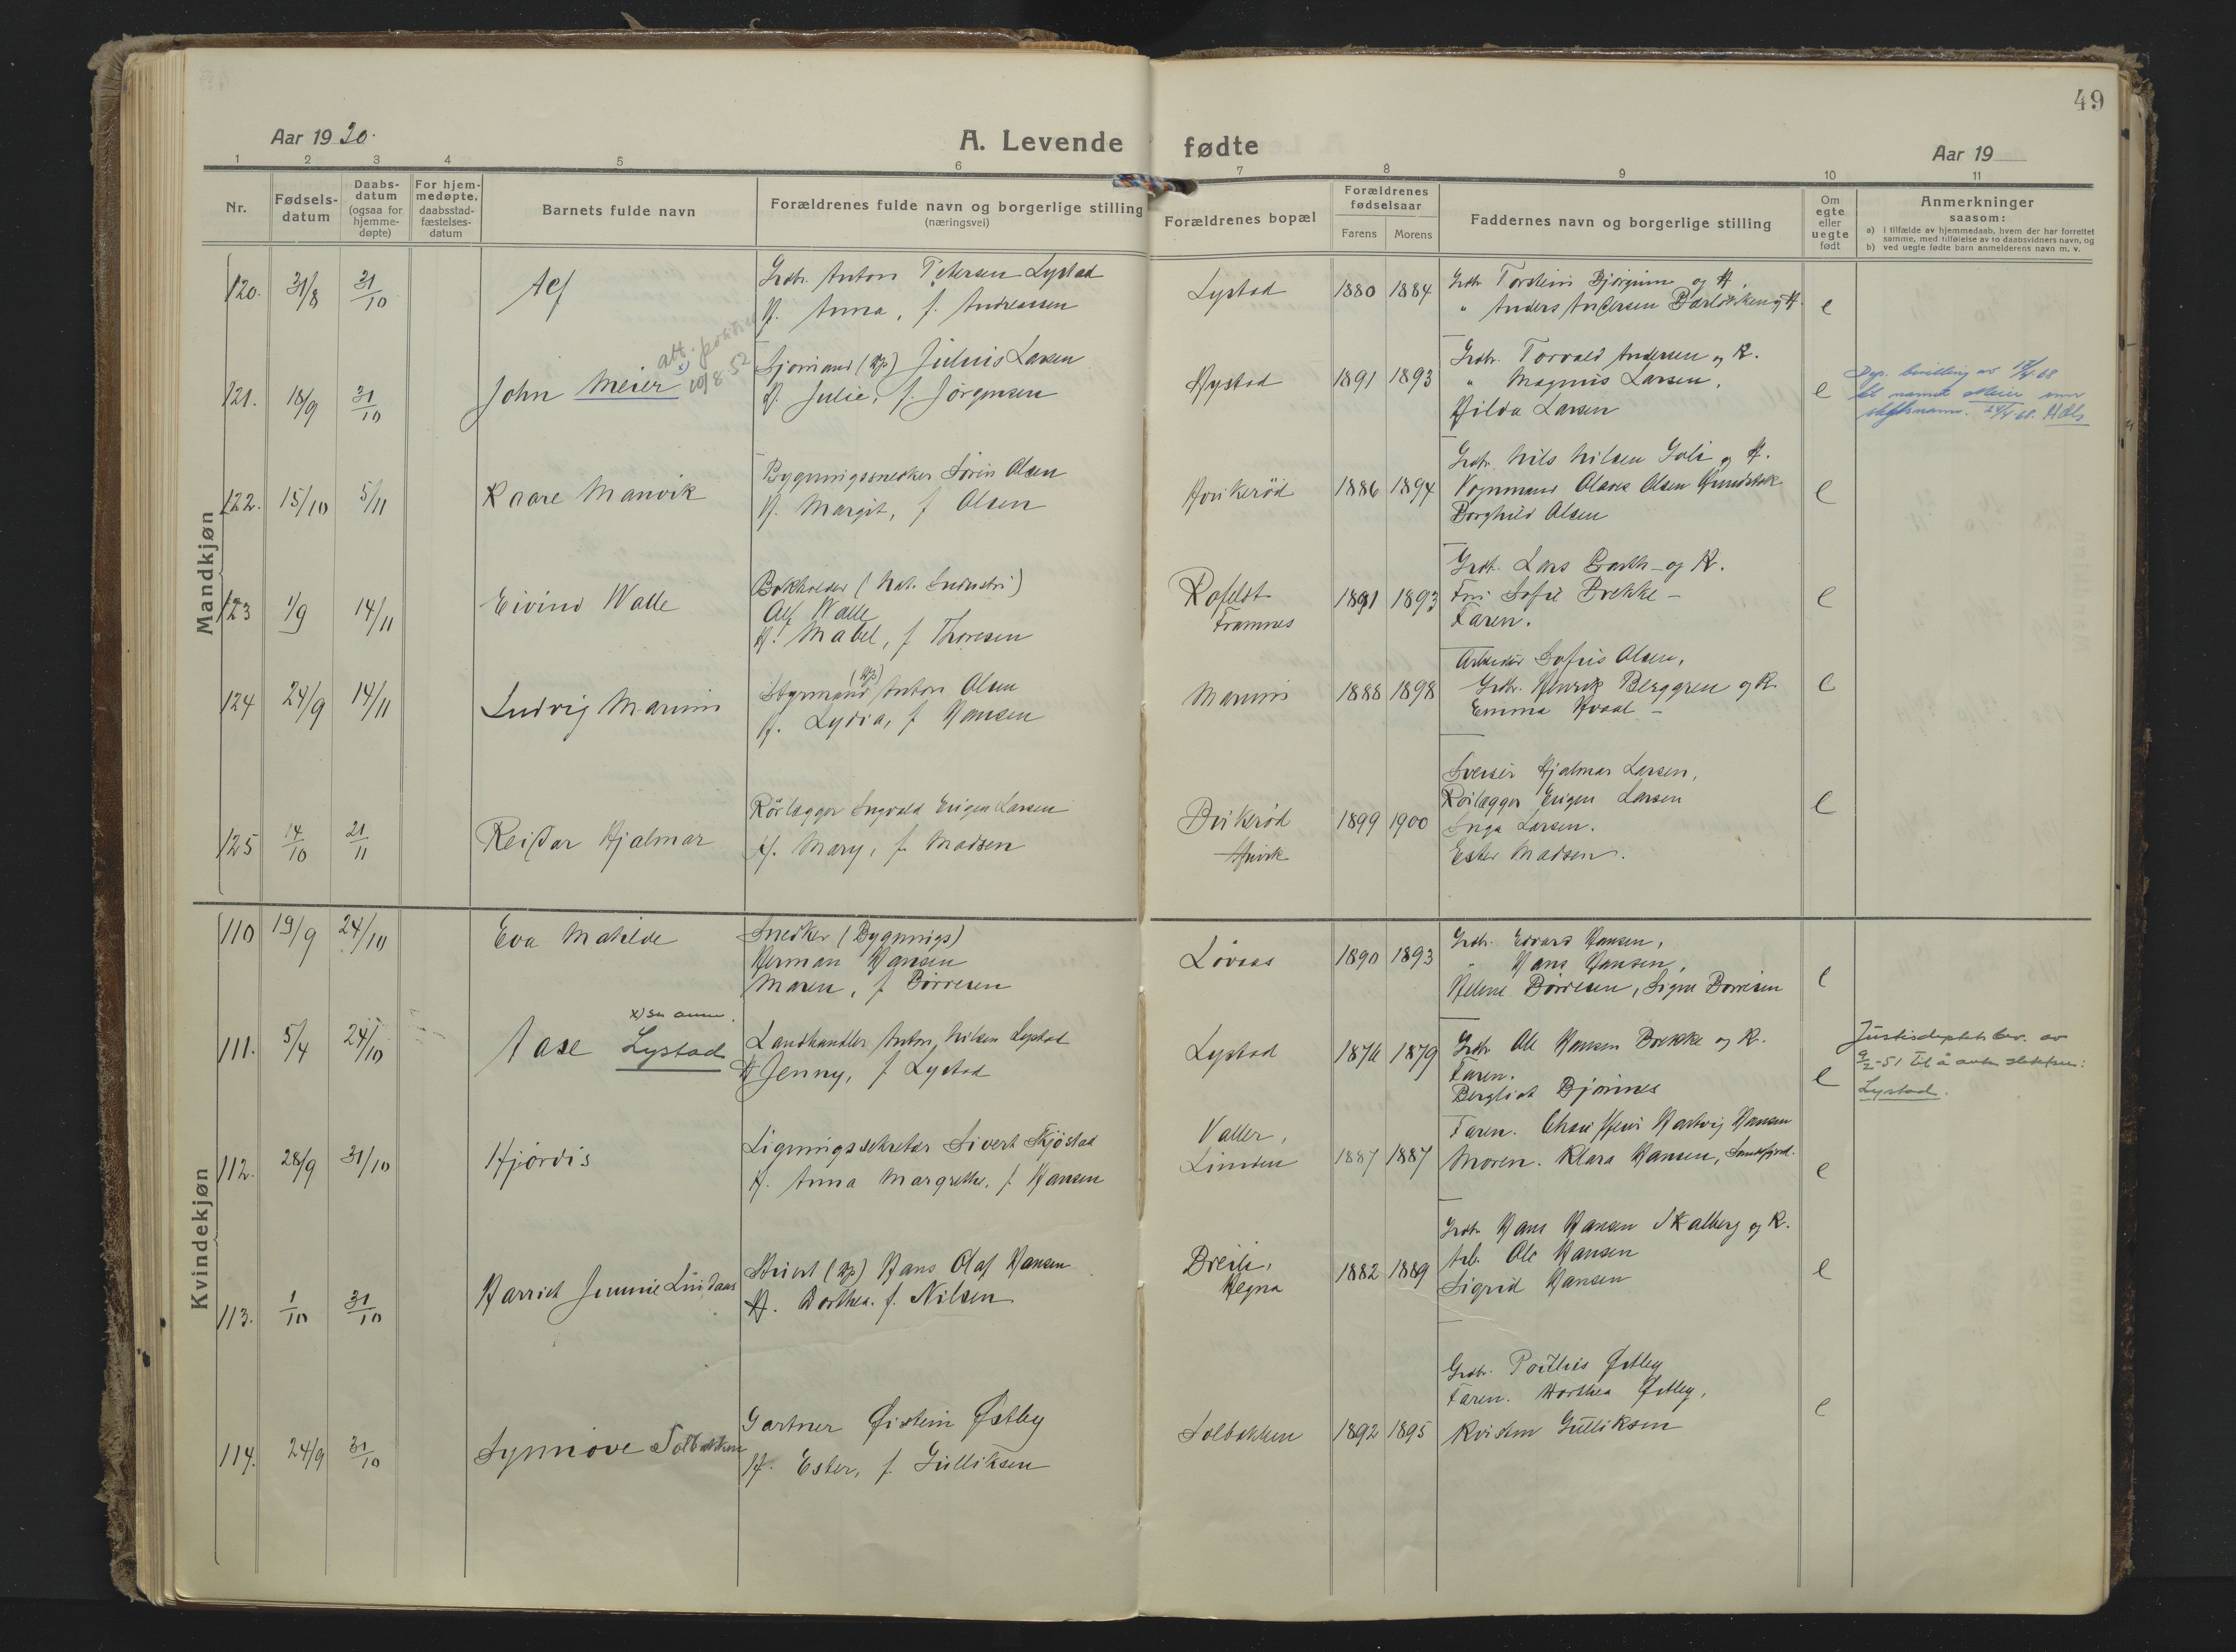 49
Aar 1920.
A. Levende fødte
Aar 19
1 2 3 4 5 6 7 8 9 10 11
Nr.
Fødsels-
datum
Daabs-
datum
(ogsaa for
hjemme-
døpte)
For hjem-
medøpte,
daabsstad-
fæstelses-
datum
Barnets fulde navn
Forældrenes fulde navn og borgerlige stilling
(næringsvei)
Forældrenes bopæl
Forældrenes
fødselsaar
Farens Morens
Faddernes navn og borgerlige stilling
Om
egte
eller
uegte
født
Anmerkninger
saasom:
a) i tilfælde av hjemmedaab, hvem der har forrettet
samme, med tilføielse av to daabsvidners navn, og
b) ved uegte fødte barn anmelderens navn m. v.
Mandkjøn
120. 31/8 31/10
Alf
Grdbr. Anton Petersen Lystad
H. Anna, f. Andreassen
Lystad
1880 1884
Grdbr. Torstein Bjørnum og H.
" Anders Andersen og H.
e
121. 18/9 31/10
John Meier
att. 10/8.52
Sjømand (Hp) Julius Larsen
H. Julie, f. Jørgensen
Hystad
1891 1893
Grdbr. Torvald Andersen og K.
" Magnus Larsen,
Hilda Larsen
e
Dep. bevilling av
til navnet Meier som
slektsnavn.
122. 15/10 5/11
Kaare Manvik
Bygningssnedker Søren Olsen
H. Margit, f Olsen
Hvikerød
1886 1894
Grdbr. Nils Nilsen Goli og H.
Vognmand Olaves Olsen
Borghild Olsen
e
123 1/9 14/11
Eivind Walle
Bokholder (Hat. Industri)
Alf Walle
H. Mabel, f Thoresen
Framnes
1891 1893
Grdbr. Lars Barth og K.
Fru Sofie Brekke
Faren.
e
124 24/9 14/11
Ludvig Marum
Styrmand (Hp) Anton Olsen
H. Lydia, f Hansen
Marum
1888 1898
Arbeider Sofus Olsen,
Grdbr. Henrik Berggren og K.
Emma Hvaal
e
125 14/10 21/11
Reidar Hjalmar
Rørlægger Ingvald Eugen Larsen
H. Mary, f. Madsen
1899 1900
Sveiser Hjalmar Larsen,
Rørlægger Eugen Larsen
Inga Larsen.
Ester Madsen.
e
Kvindekjøn
110 19/9 24/10
Eva Matilde
Snedker (Bygnings)
Herman Hansen
Maren, f Børresen
Løvaas
1890 1893
Grdbr. Edvard Hansen,
" Hans Hansen,
Helene Børresen, Signe Børresen
e
111. 5/4 24/10
x) se anm.
Aase Lystad
Landhandler Anton Nilsen Lystad
H Jenny, f Lystad
Lystad
1876 1879
Grdbr Ole Hansen Brekke og K.
Faren.
Bergliot Bjønnes
e
Justisdeptets bev. av
9/2-51 til å anta slektsn:
Lystad.
112. 28/9 31/10
Hjørdis
Ligningssekretær Sivert Skjøstad
H. Anna Margrethe, f. Hansen
Valler,
Linden
1887 1887
Faren. Hartvig Hansen
Moren. Klara Hansen, Sandefjord.
e
113. 1/10 31/10
Harriet Jennie Lindaas
Stuert (Hp) Hans Olaf Hansen
H. Dorthea. f. Nilsen
Breili,
Hegna
1882 1889
Grdbr Hans Hansen Skalberg og K.
Arb. Ole Hansen
Sigrid Hansen
e
114. 24/9 31/10
Synnøve Solbakken
Gartner Øistein Østby
H. Ester, f. Gulliksen
Solbakken
1892 1895
Grdbr. Paulius Østby
Faren. Marthea Østby,
Kristen Gulliksen
e